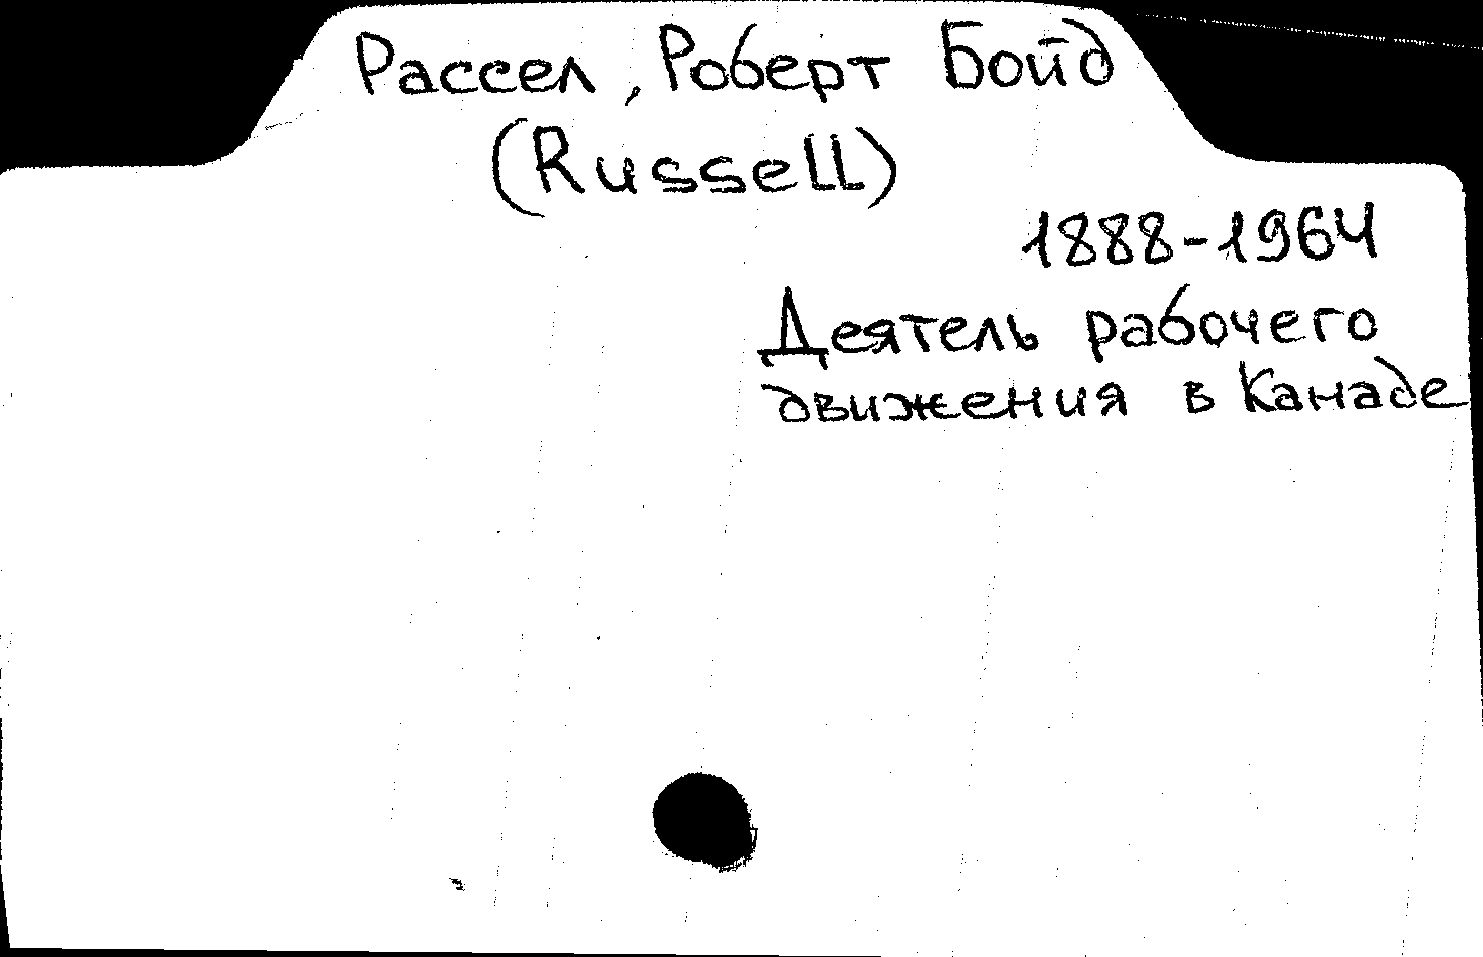 Рассел, Роберт Бойд
(Russell)
1888-1964
Деятель рабочего
движения в Канаде